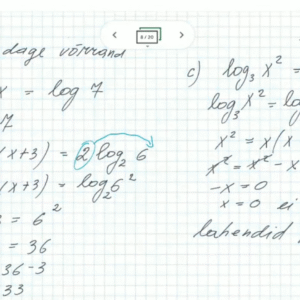 dage võrrand
x = log 7
7
(x+3) = 2 log₂ 6
(x+3) = log₂ 6²
3 = 6²
= 36
36-3
33
6 / 20
c) log₃ x² =
log₃ x² = log
x² = x(x
x² = x² - x
-x = 0
x = 0 ei
Lahendid